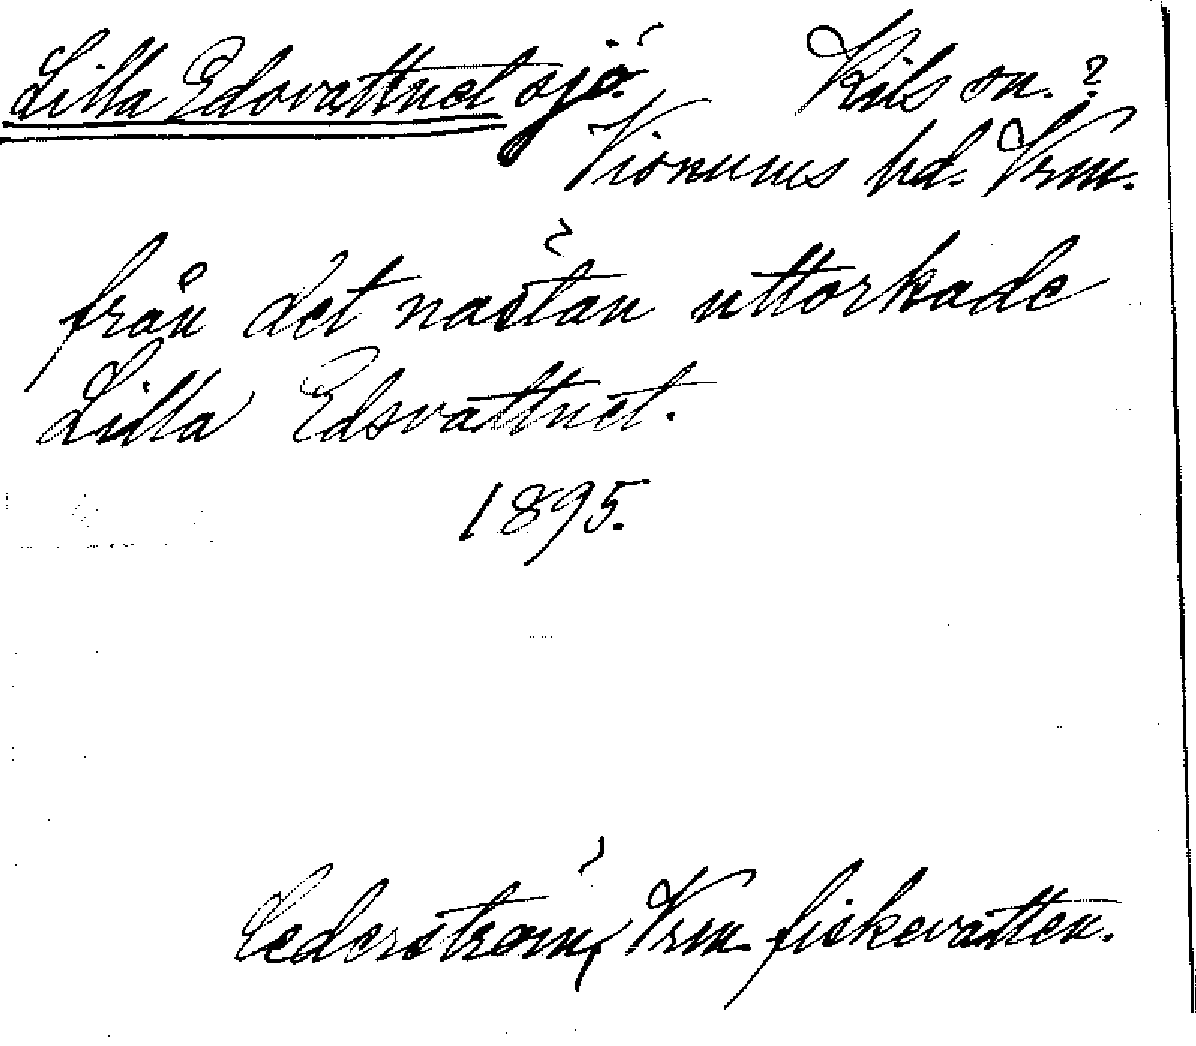 Lilla Edsvattnet sjö. Kils sn.?
Visnums hd. Vrm.
från det nästan uttorkade
Lilla Edsvattnet.
1895.
Cederström, Vrm fiskevatten.